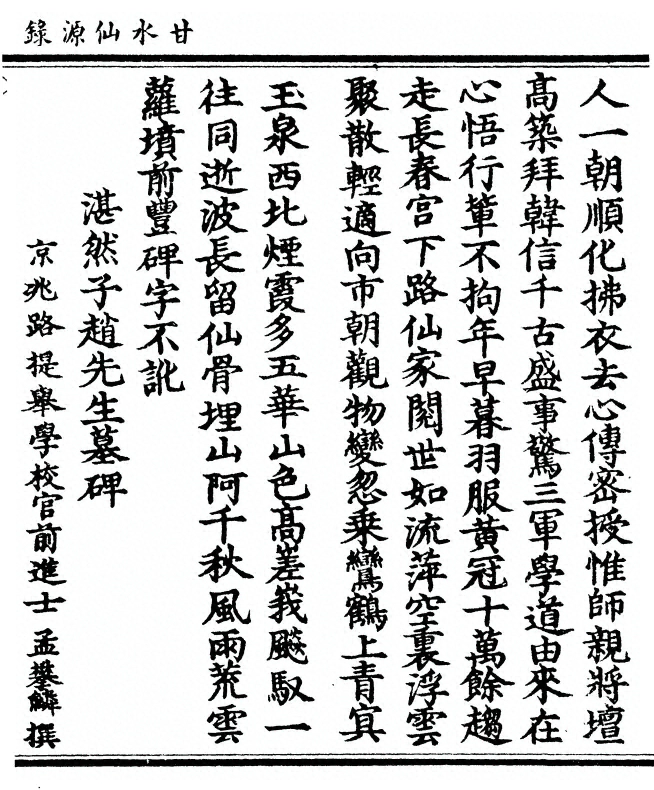 甘水仙源錄
人一朝順化拂衣去心傳密授惟師親將壇
高築拜韓信千古盛事驚三軍學道由來在
心悟行輩不拘年早暮羽服黃冠十萬餘趨
走長春宮下路仙家閱世如流萍空裏浮雲
聚散輕適向市朝觀物變忽乘鸞鶴上青冥
玉泉西北煙霞多五華山色高嵳峩飈馭一
往同逝波長留仙骨埋山阿千秋風雨荒雲
蘿墳前豐碑字不訛
湛然子趙先生墓碑
京兆路提舉學校官前進士孟攀鱗撰